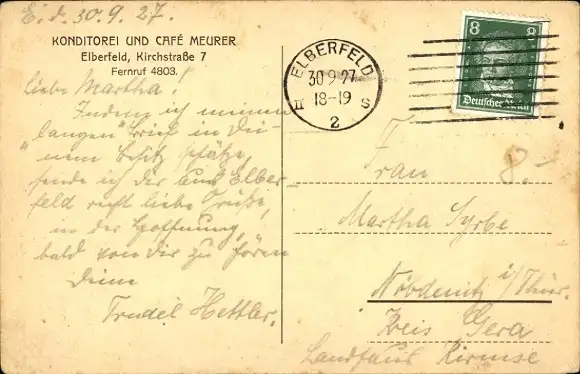 E. d. 30. 9. 27.
KONDITOREI UND CAFÉ MEURER
Elberfeld, Kirchstraße 7
Fernruf 4803.
Liebe Martha!
Indem ich meinen
"langen" Brief in Dei-
nem Besitz schätze,
sende ich dir aus Elber-
feld recht liebe Grüße,
in der Hoffnung,
bald von Dir zu hören
Deine
Trudel Hettler.
ELBERFELD
30.9.27
18-19
II S
2
8 8
Deutsches Reich
8.-
Frau
Martha Syrbe
Nöbdenitz i/Thür.
Kreis Gera
Landhaus Kirmse